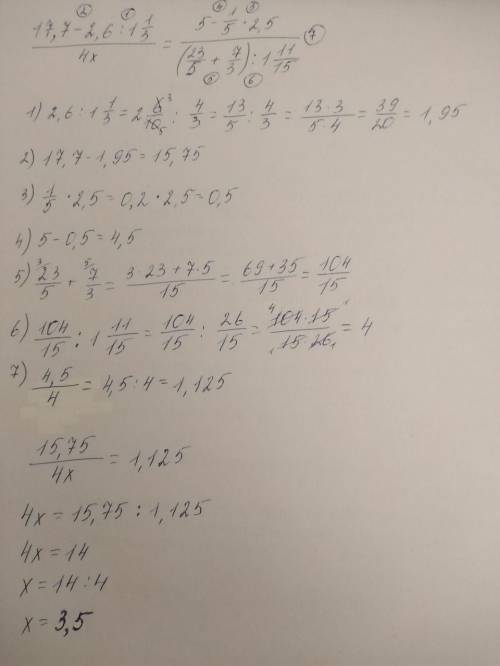 ② ① ④ ③
(17,7 - 2,6 : 1 1/3) / 4x = (5 - 1/5 · 2,5) / ((23/5 + 7/3) : 1 11/15) ⑦
⑤ ⑥
1) 2,6 : 1 1/3 = 2 6³/10₅ : 4/3 = 13/5 : 4/3 = 13·3/5·4 = 39/20 = 1,95
2) 17,7 - 1,95 = 15,75
3) 1/5 · 2,5 = 0,2 · 2,5 = 0,5
4) 5 - 0,5 = 4,5
5) ³23/5 + ⁵7/3 = (3·23+7·5)/15 = (69+35)/15 = 104/15
6) 104/15 : 1 11/15 = 104/15 : 26/15 = ⁴104·15¹/₁15·26₁ = 4
7) 4,5/4 = 4,5 : 4 = 1,125
15,75/4x = 1,125
4x = 15,75 : 1,125
4x = 14
x = 14 : 4
x = 3,5